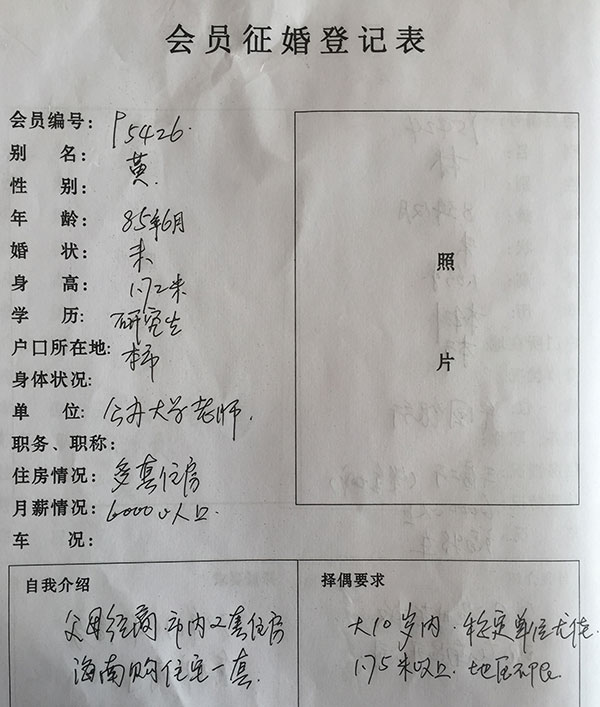 会员征婚登记表
会员编号: P5426.
别 名: 黄.
性 别:
年 龄: 85年6月
婚 状: 未
身 高: 1.72米
学 历: 研究生
户口所在地: 本市
身体状况:
单 位: 公办大学老师.
职务、职称:
住房情况: 多套住房
月薪情况: 6000以上.
车 况:
照
片
自我介绍
父母经商.市内2套住房
海南购住宅一套.
择偶要求
大10岁内.稳定单位无住
1.75米以上.地区不限